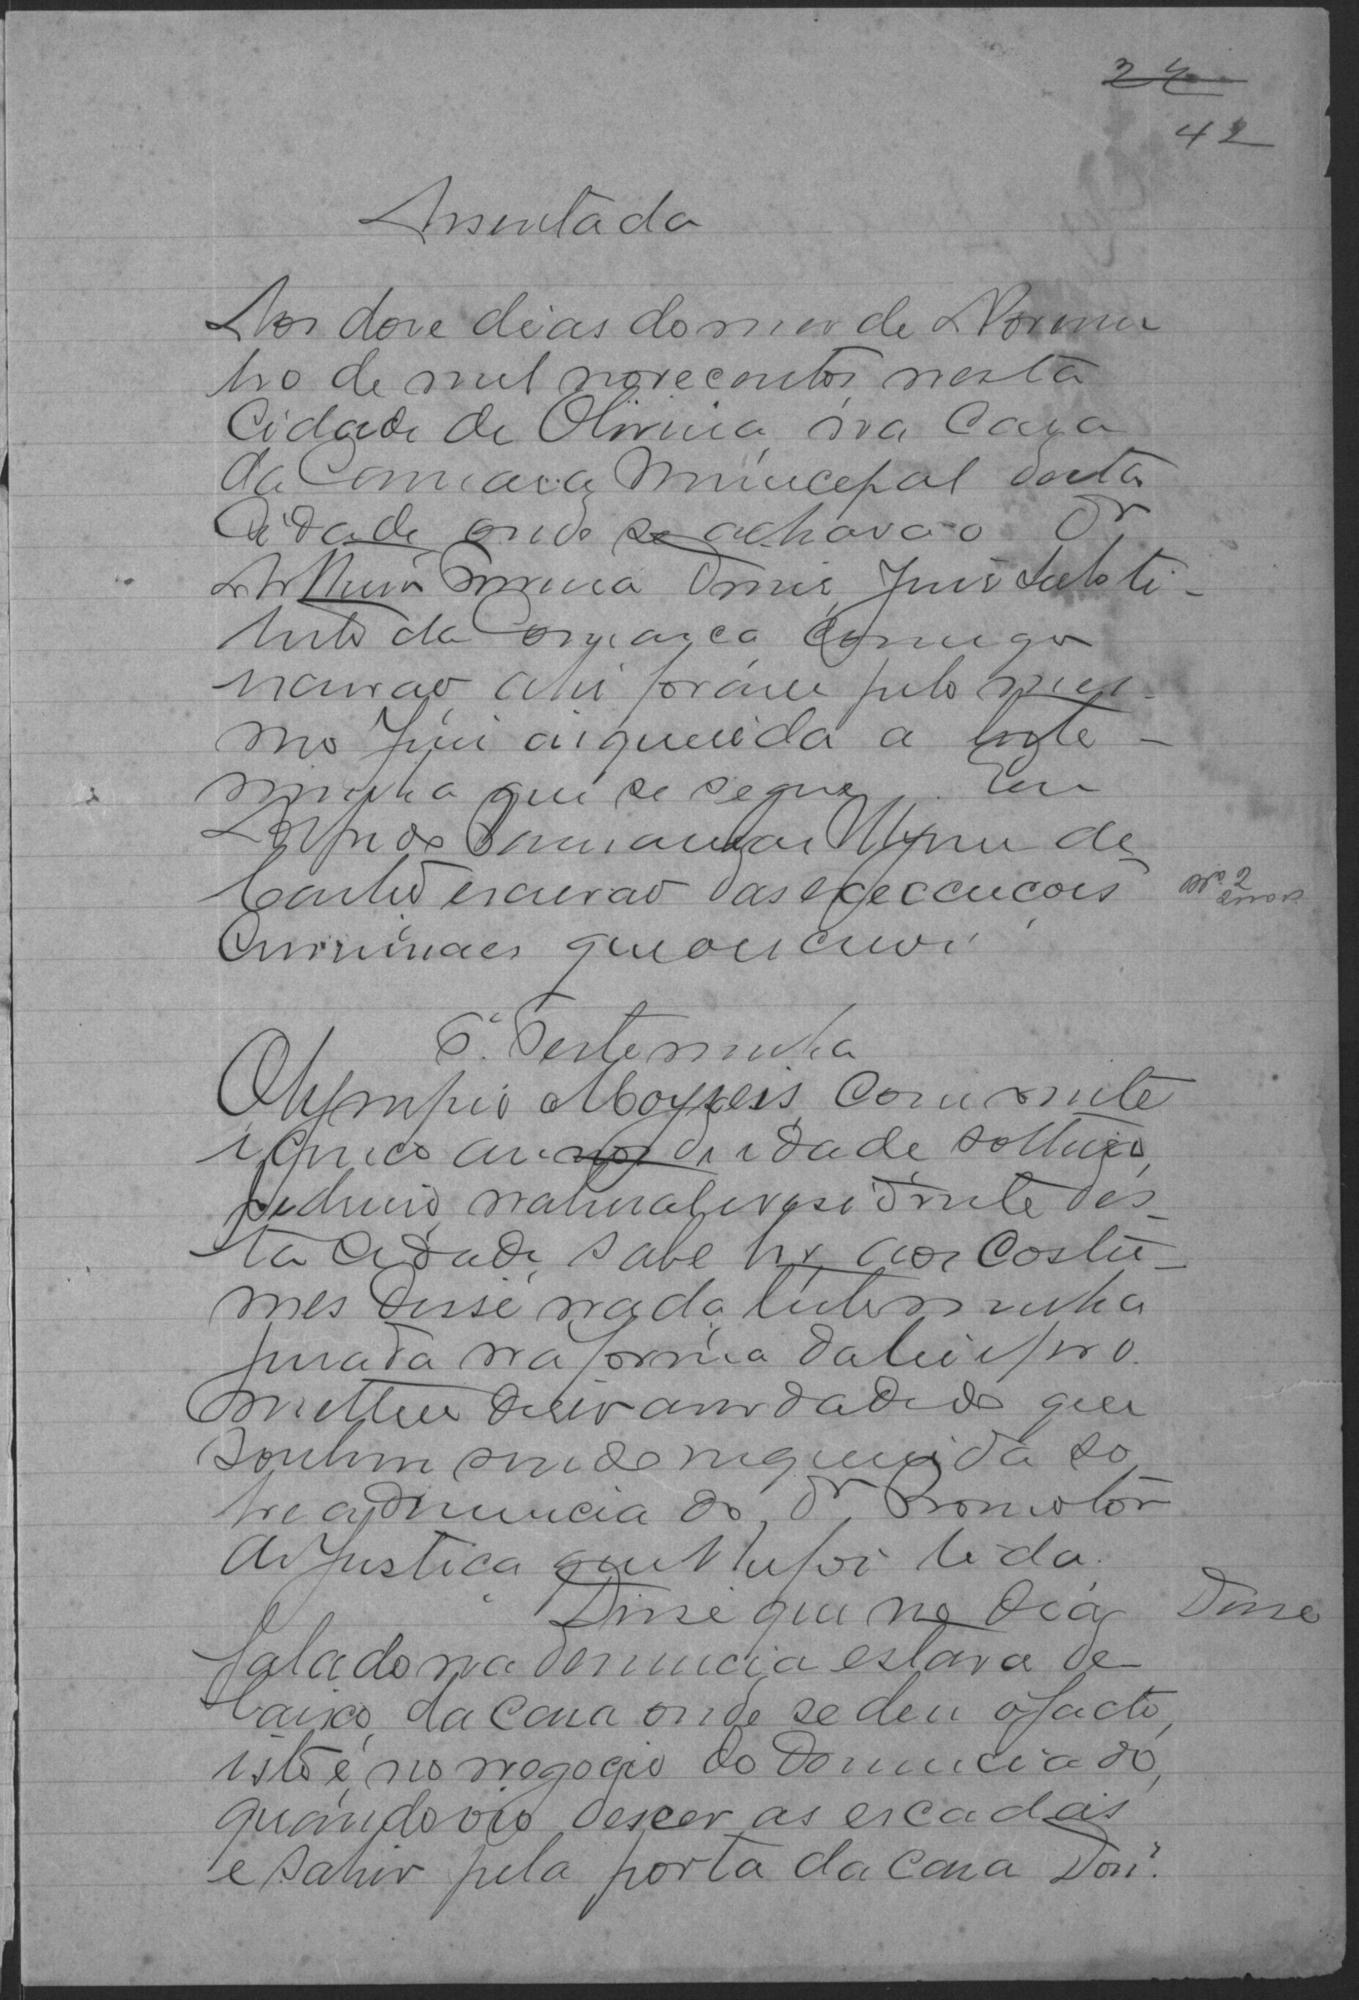 42
Assentada
Aos dose dias do mes de Novem
bro de mil novecentos nesta
Cidade de Oliveira na Casa
da Camara Municipal desta
Cidade onde se achava o Dr
Juis Substi-
tuto da Comarca comigo
escrivão ahi foráu pelo mes-
mo Juis enquerida a teste-
minha que se segue. Eu
de
Castro escrivão das execcucois
Criminaes que o escrevi
6ª Testeminha
Olympio Moyseis com vinte
e cinco annos de idade solteiro,
pedreiro, natural e residente des-
ta Cidade, sabe ler, aos costu-
mes disse nada, testeminha
jurada na forma da lei e pro
metteu diser a verdade do que
soubese sendo inquerida so
bre a denuncia do Dr Promotor
de Justiça que lhe foi lida.
Disse que no dia Disse
falado na denuncia estava de
baixo da casa onde se deu o facto,
isto é, no negocio do denunciado,
quando vio descer as escadas
e sahir pela porta da casa Don.